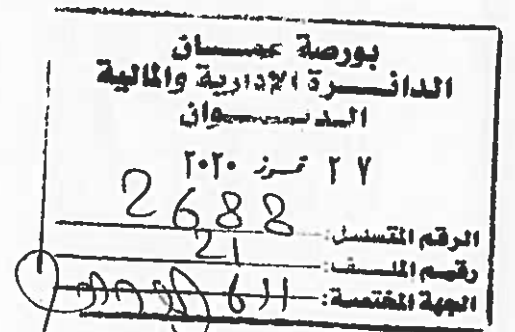 بورصة عمــــان
الدائـــرة الادارية والمالية
الديـــــوان
٢٧ تمـوز ٢٠٢٠
الرقم المتسلسل: 2688
رقـــم الملـــف: 21
الجهة المختصة: